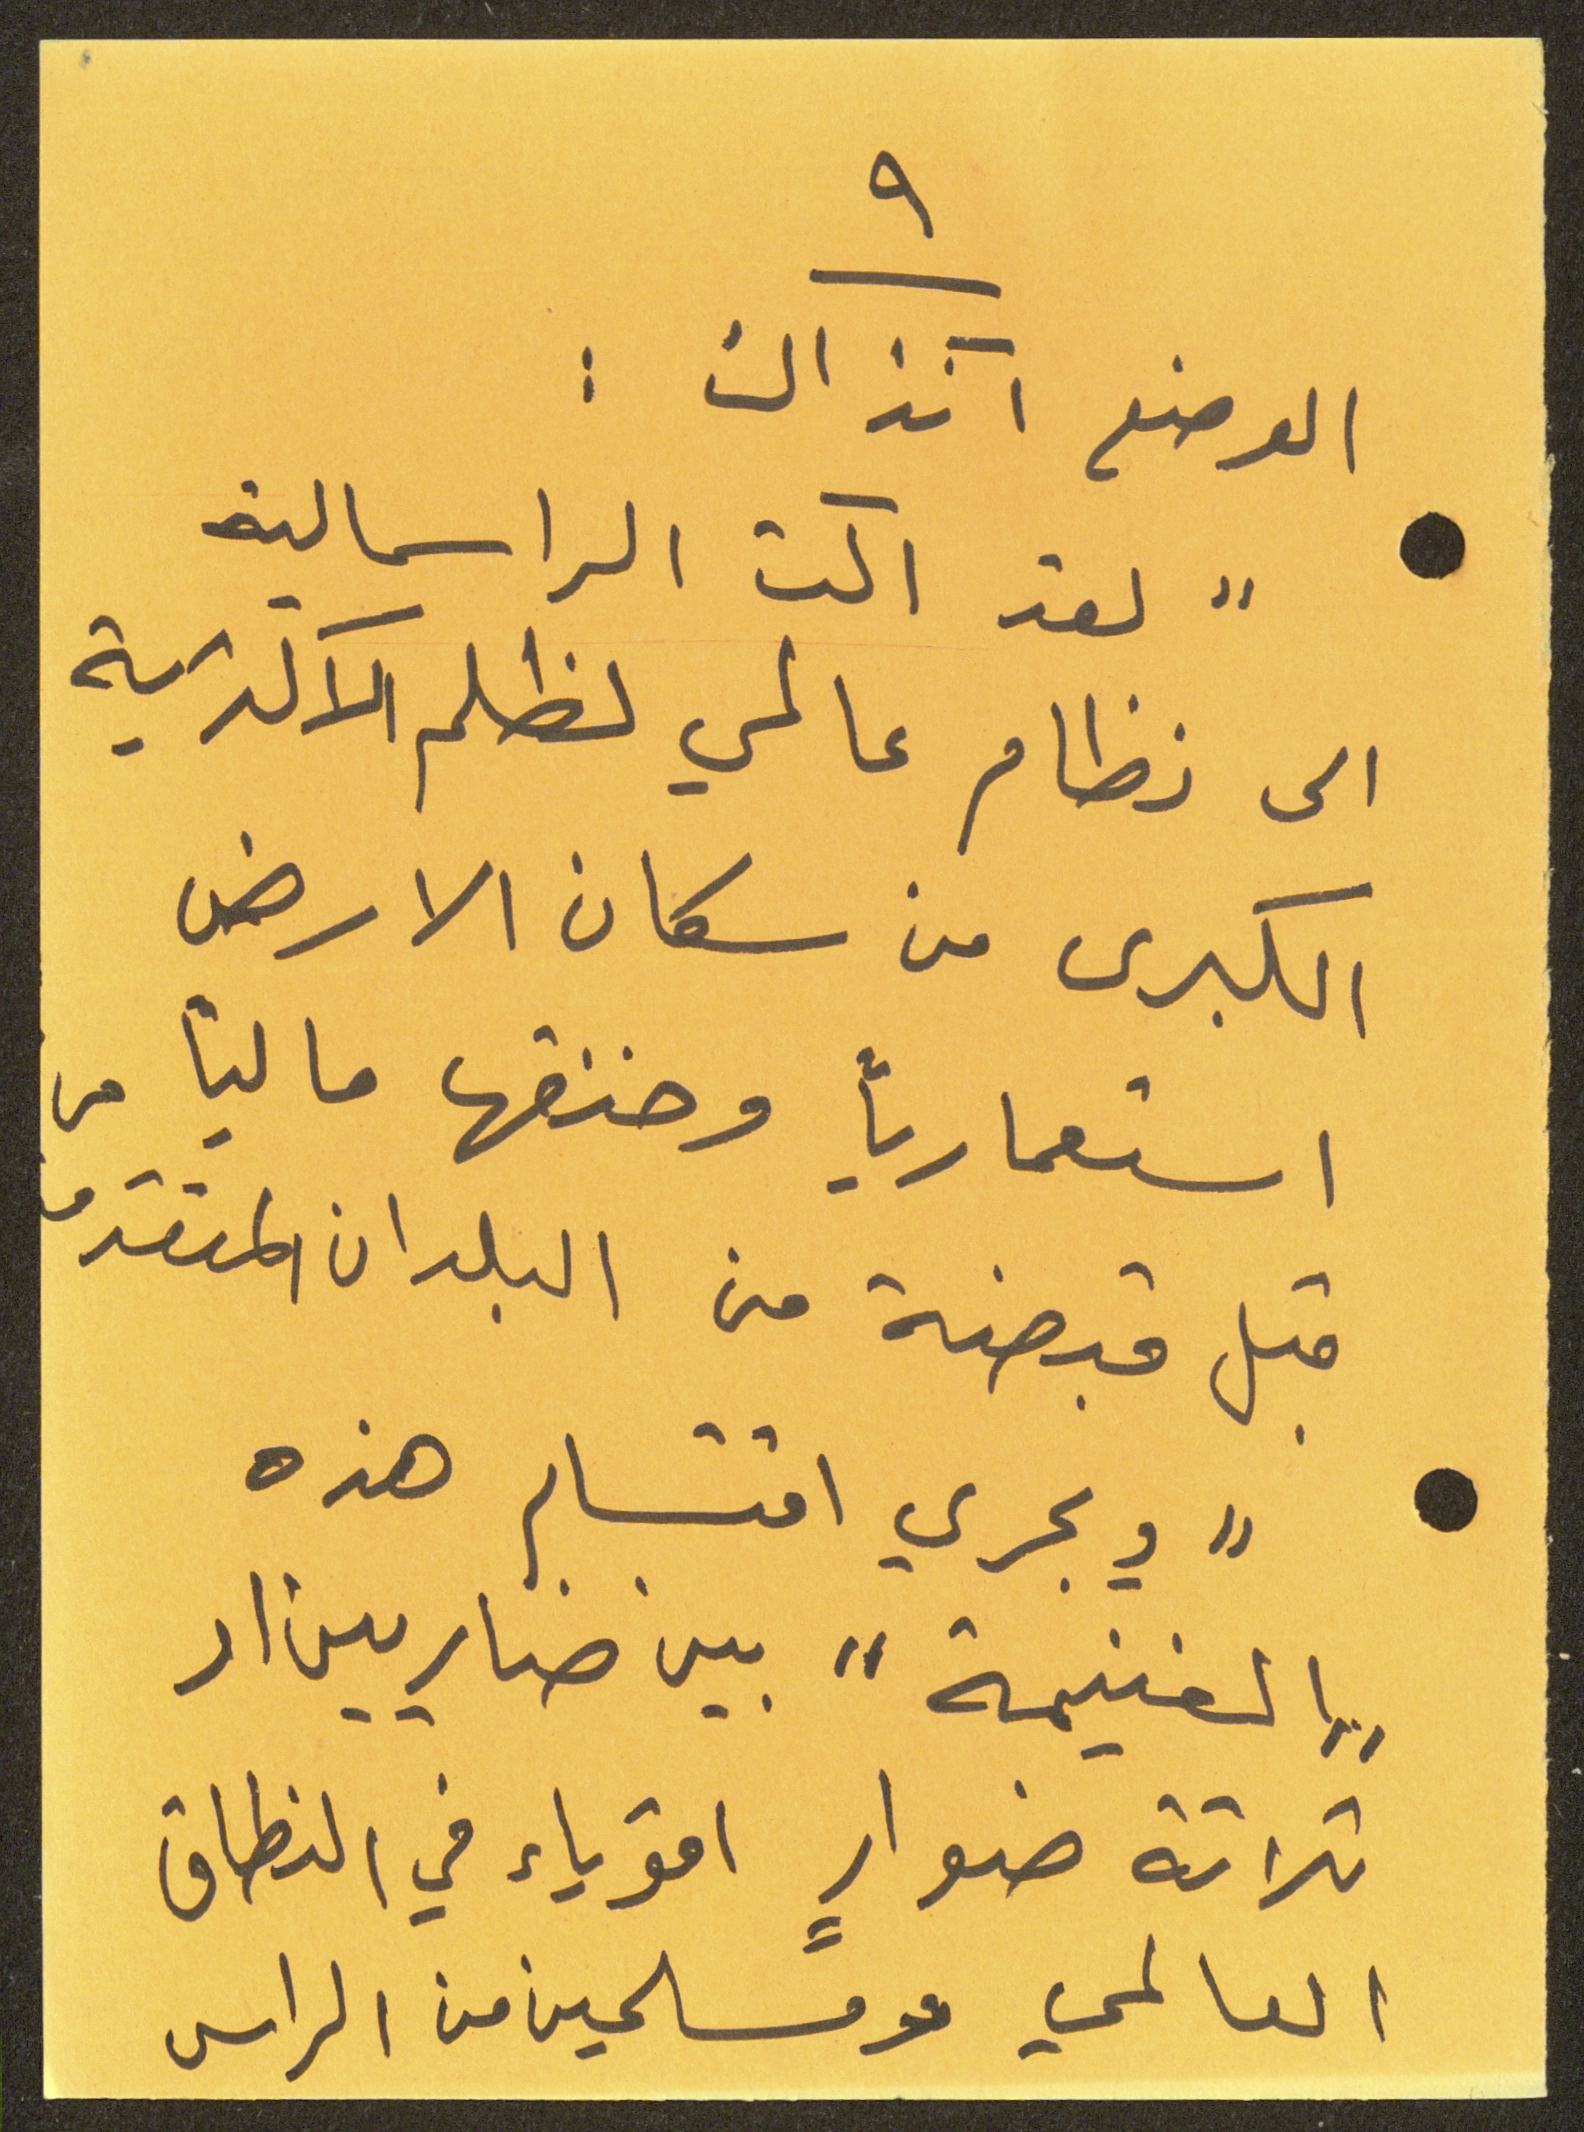 ٩
الوضع آنذاك :
" لقد آلت الراسمالية
الى نظام عالمي لظلم الأكثرية
الكبرى من سكان الارض
استعمارياً وخنقها مالياً من
قبل قبضة من البلدان المتقدمة
" ويجري اقتسام هذه
"الغنيمة" بين ضاريين او
ثلاثة ضوارٍ اقوياء في النطاق
العالمي ومسلحين من الراس